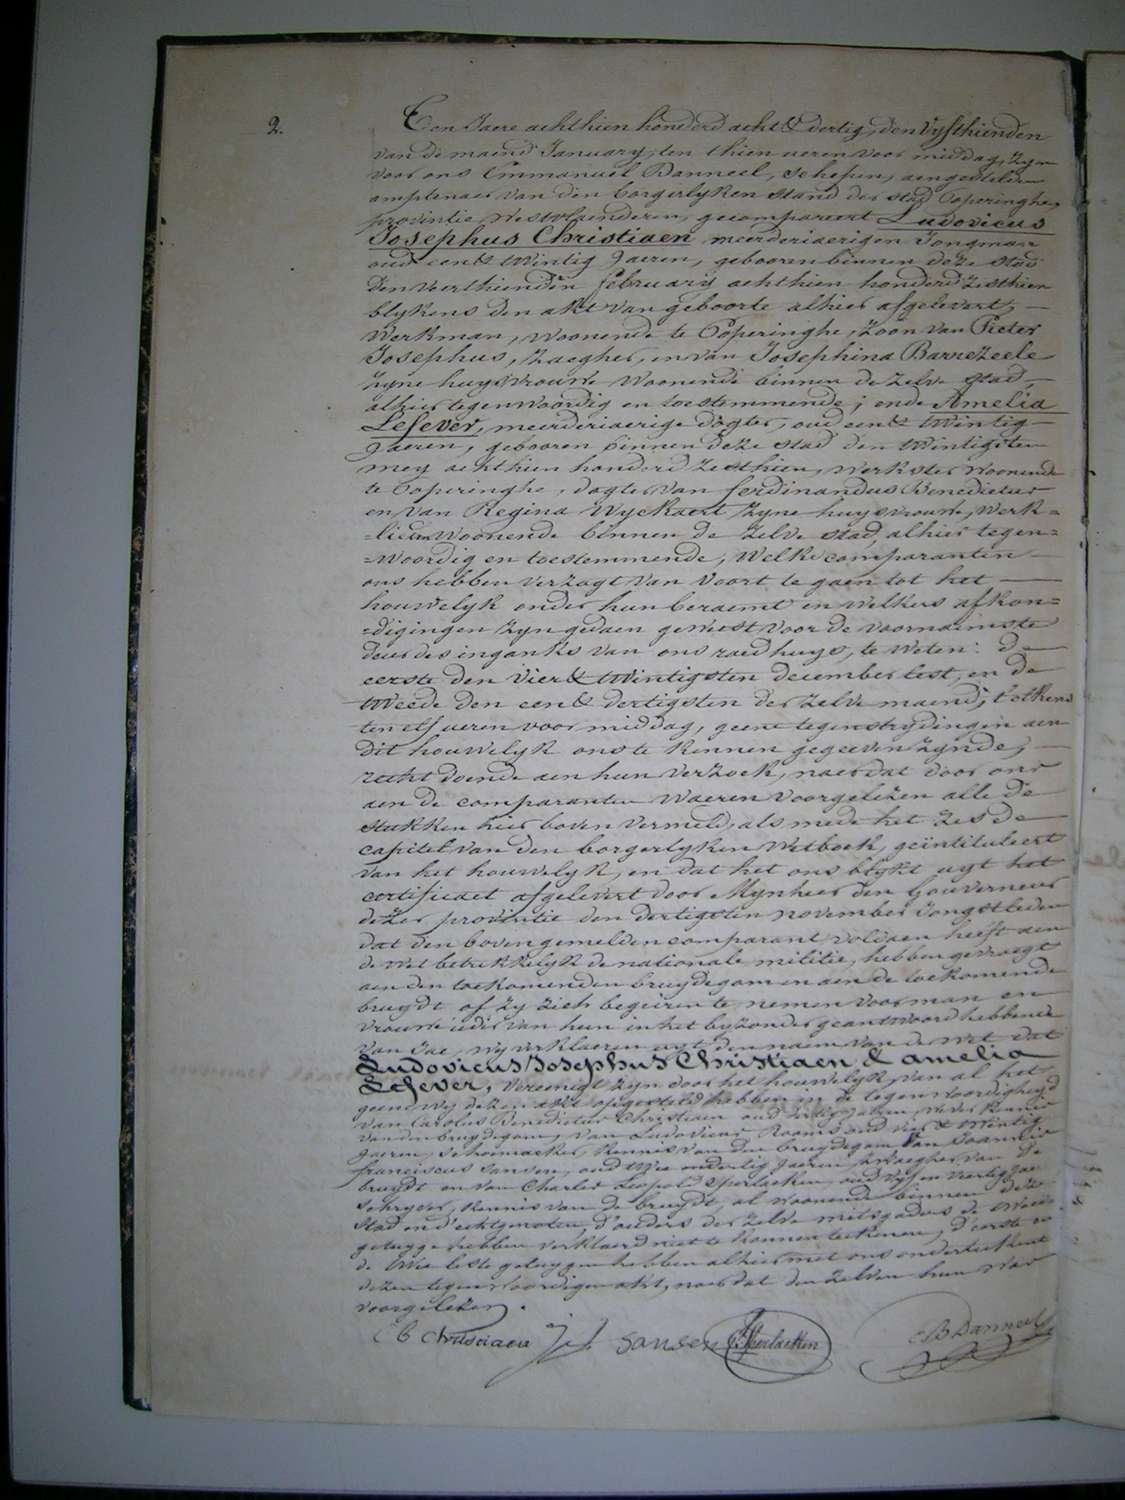 2.
Een Jaere achthien honderd acht & dertig, den Vyfthienden
van de maend January, ten thien ueren voor middag, Zyn
voor ons Emmanuel Banneel, schepen, aengestelden
amptenaer van den borgerlyken stand der stad Poperinghe,
provintie Westvlaenderen, gecompareert Ludovicus
Josephus Christiaen, meerderjaerigen Jongman
oud een & twintig Jaeren, gebooren binnen deze stad
den veerthienden february achthien honderd zesthien
blykens den akt van geboorte alhier afgelevert,
Werkman, woonende te Poperinghe, zoon van Pieter
Josephus, Zaegher, en van Josephina Barrezeele
zyne huysvrouwe woonende binnen de zelve stad,
alhier tegenwoordig en toestemmende; ende Amelia
Lefever, meerderjaerige dogter, oud een & twintig
Jaeren, gebooren binnen deze stad den twintigsten
mey achthien honderd zesthien, werkster woonende
te Poperinghe, dogter van ferdinandus Benedictus
en van Regina Wyckaert zyne huysvrouwe, werk=
=lieden woonende binnen de zelve stad, alhier tegen=
=woordig en toestemmende, Welke comparanten
ons hebben verzogt van voort te gaen tot het
houwelyk onder hun beraemt en welkers afkon=
=digingen zyn gedaen geweest voor de voornaemste
deur des inganks van ons raedhuys, te weten: de
eerste den Vier & twintigsten december lest, en de
tweede den een & dertigsten der zelve maend, t'elkens
ten elf ueren voor middag, geene tegenstrydingen aen
dit houwelyk ons te kennen gegeeven zynde,
recht doende aen hun verzoek, naer dat door ons
aen de comparanten waeren voorgelezen alle de
stukken hier boven vermeld, als mede het zesde
capitel van den borgerlyken wetboek, geïntituleert
van het houwelyk, en dat het ons blykt uyt het
certificaet afgelevert door Mynheer den Gouverneur
dezer provintie den dertigsten november Jongstleden
dat den boven gemelden comparant voldaen heeft aen
de wet betrekkelyk de nationale militie, hebben gevraegt
aen den toekomenden bruydegom en aen de toekomende
bruydt of zy zich begeiren te nemen voor man en
vrouwe ieder van hun in het byzonder geantwoord hebbende
van Jae, wy verklaeren uyt den naem van de wet dat
Ludovicus Josephus Christiaen & amelia
Lefever, vereenigt zyn door het houwelyk, van al het
geene wy dezen akt opgesteld hebben in de tegenwoordigheyd
van Carolus Benedictus Christiaen oud dertig Jaeren, Wever kennis
van den bruydegom, van Ludovicus Rooms oud vier & twintig
Jaeren, schoenmaeker, kennis van den bruydegom van Joannes
franciscus Sansen, oud twee en dertig Jaeren, zwaegher van de
bruydt en van Charles Leopold Sperlaeken, oud vyf en veertig Jaer
schryver, kennis van de bruydt, al woonende binnen deze
stad en d'echtgenoten, d'ouders der zelve mitsgaders de tweede
getuyge hebben verklaerd niet te konnen teekenen, d'eerste en
de twee leste getuygen hebben alhier met ons onderteekent
dezen tegenwoordigen akt, naer dat den zelven hun was
voorgelezen.
C B Christiaen J f Sansen Sperlaeken E B Banneel